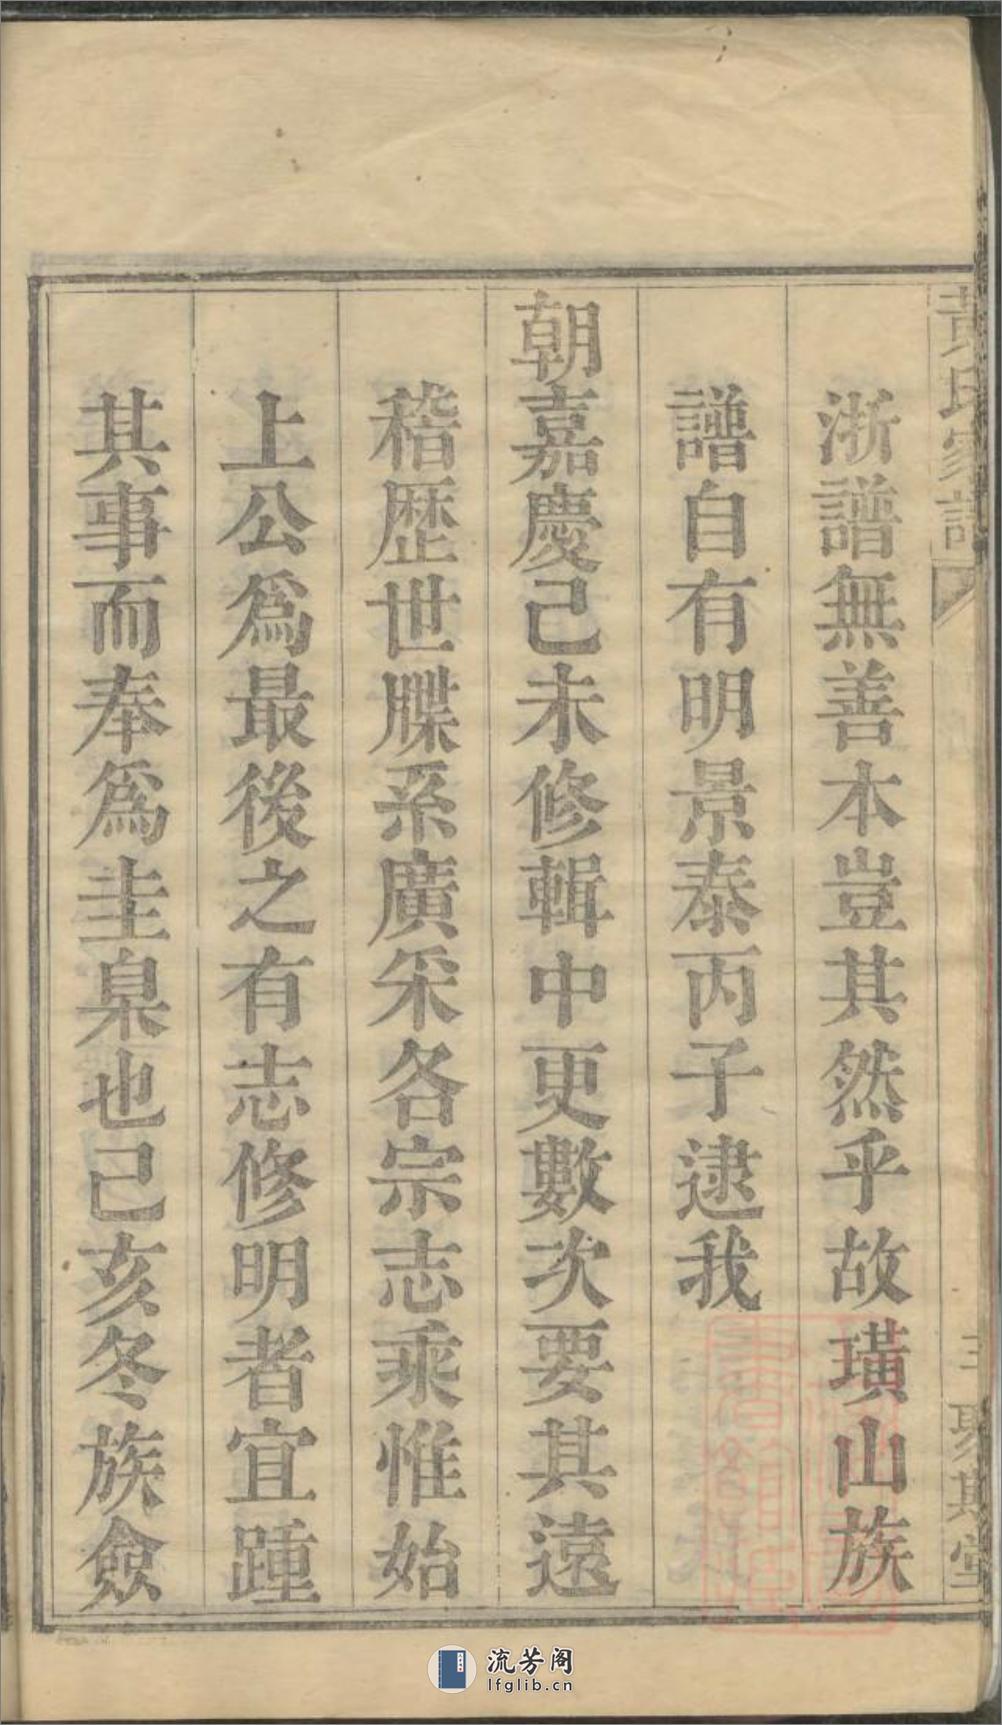 黃氏家譜
三
聚斯堂
浙譜無善本豈其然乎故璜山族
譜自有明景泰丙子逮我
朝嘉慶己未修輯中更數次要其遠
稽歴世牒系廣采各宗志乘惟始
上公爲最後之有志修明者宜踵
其事而奉爲圭臬也己亥冬族僉
流芳阁
lfglib.cn